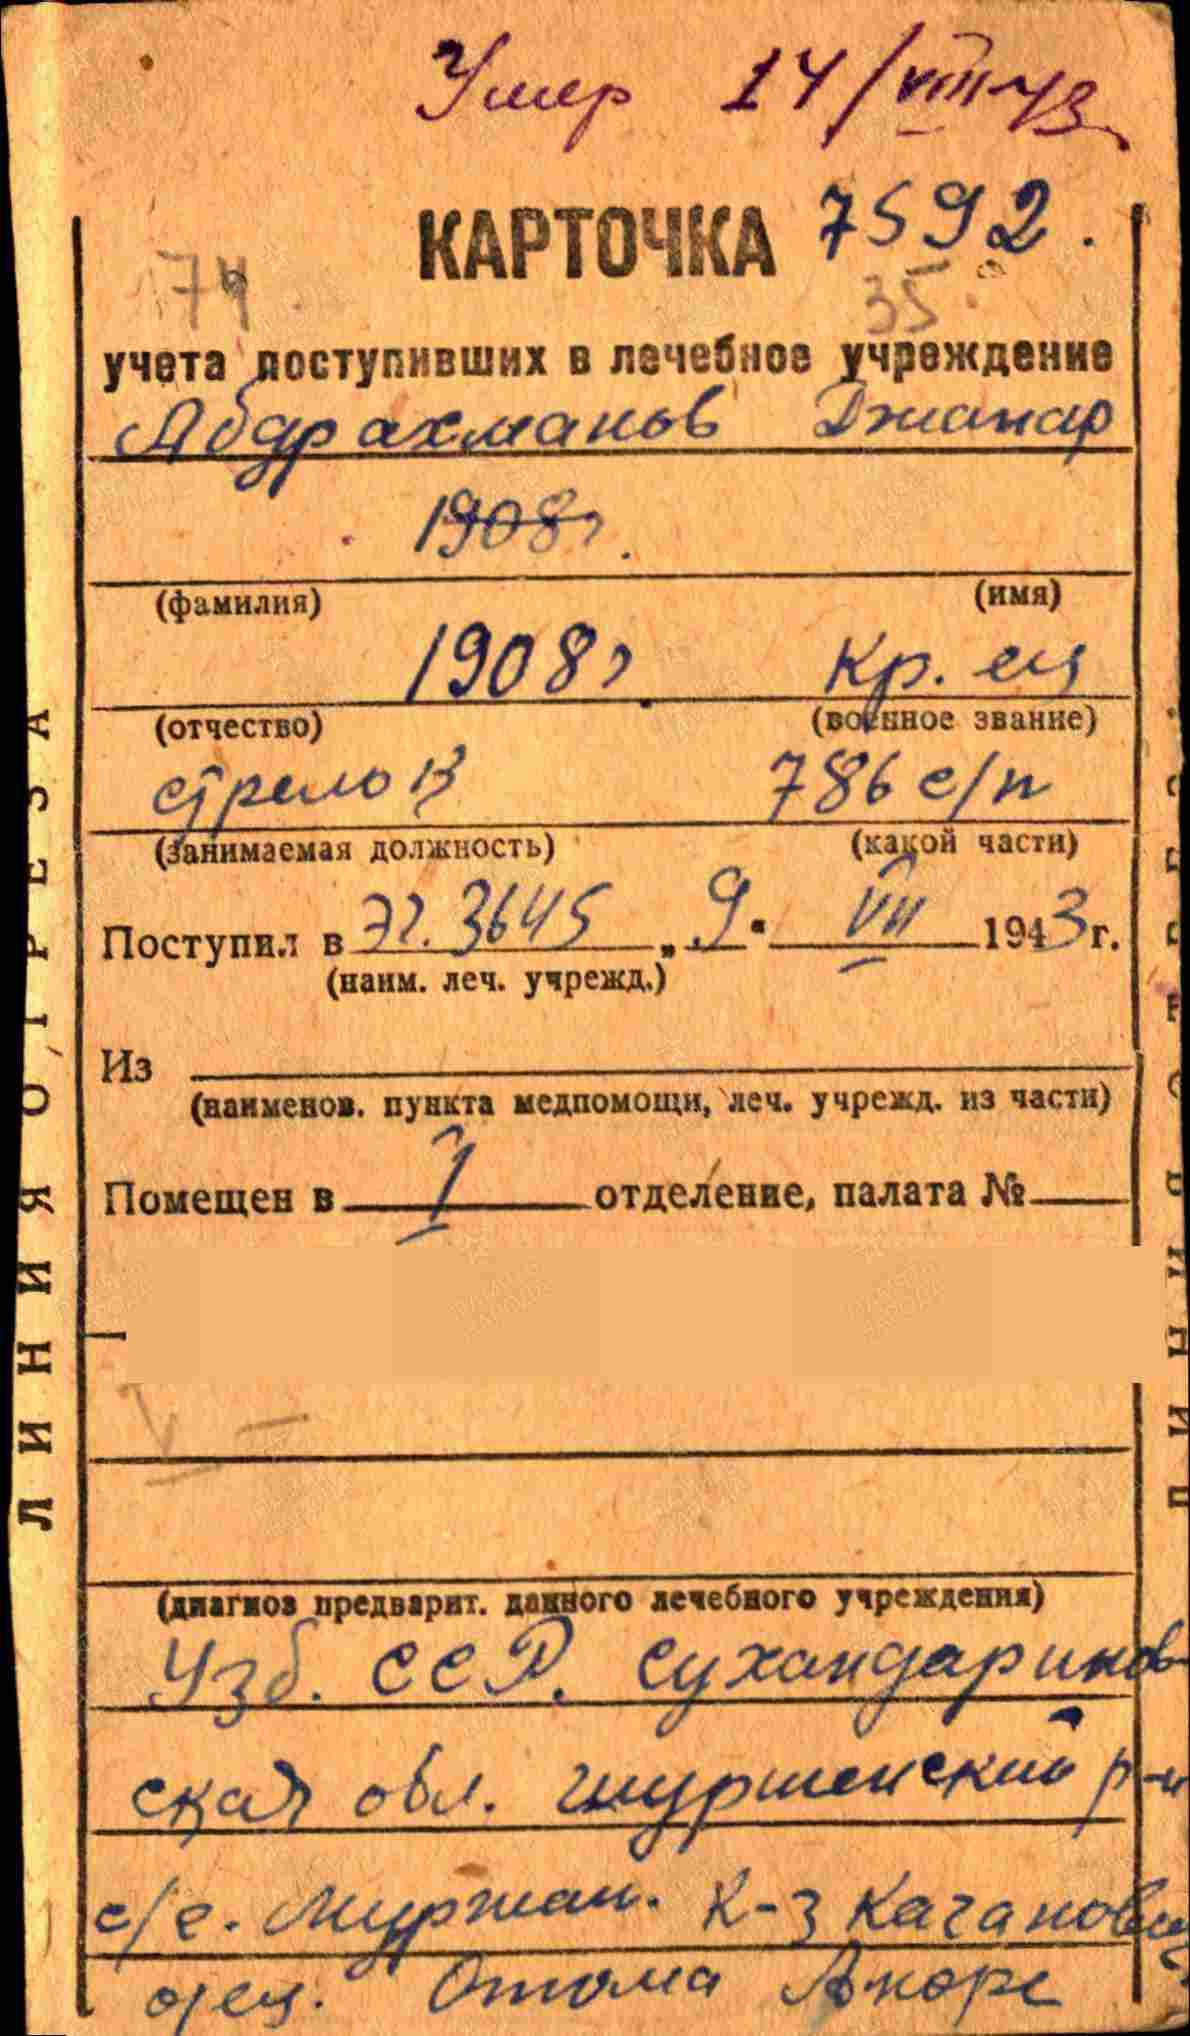 Умер 14/VIII-43
КАРТОЧКА 7592.
174. 35
учета поступивших в лечебное учреждение
Абдрахманов Джанар
1908г.
(фамилия) (имя)
1908г. Кр. ец
(отчество) (военное звание)
стрелов 786 с/п
(занимаемая должность) (какой части)
Поступил в Эг. 3645 „ 9 " VII 1943 г.
(наим. леч. учрежд.)
Из
(наименов. пункта медпомощи, леч. учрежд. из части)
Помещен в I отделение, палата №
V —
(диагноз предварит. данного лечебного учреждения)
Узб. ССР. Сухандаринов-
ская обл. р-н
с/с. Муржан. к-з Каганович
отец.
ЛИНИЯ ОТРЕЗА